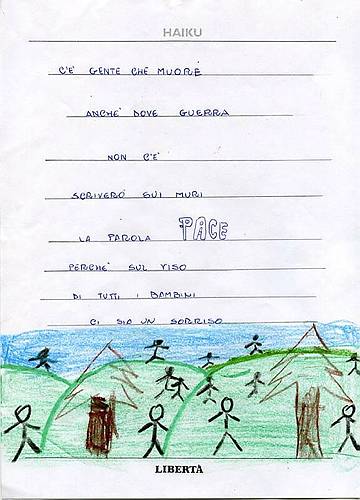 HAIKU
C'È GENTE CHE MUORE
ANCHE DOVE GUERRA
NON C'È
SCRIVERÒ SUI MURI
LA PAROLA PACE
PERCHÈ SUL VISO
DI TUTTI I BAMBINI
CI SIA UN SORRISO
LIBERTÀ